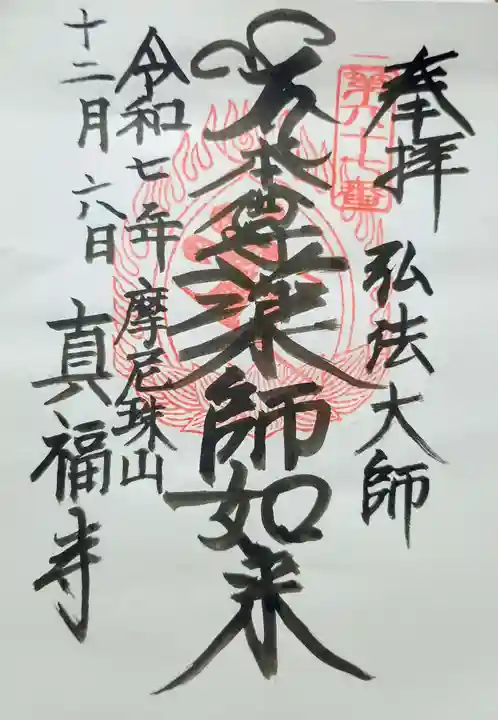 奉拝 弘法大師
第六十七番
本尊薬師如来
令和七年 摩尼珠山
十二月六日 真福寺